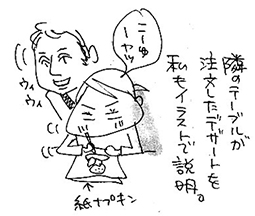 隣のテーブルが
注文したデザートを
私もイラストで説明。
こーゆー
ヤツ
ウィ
ウィ
紙ナプキン